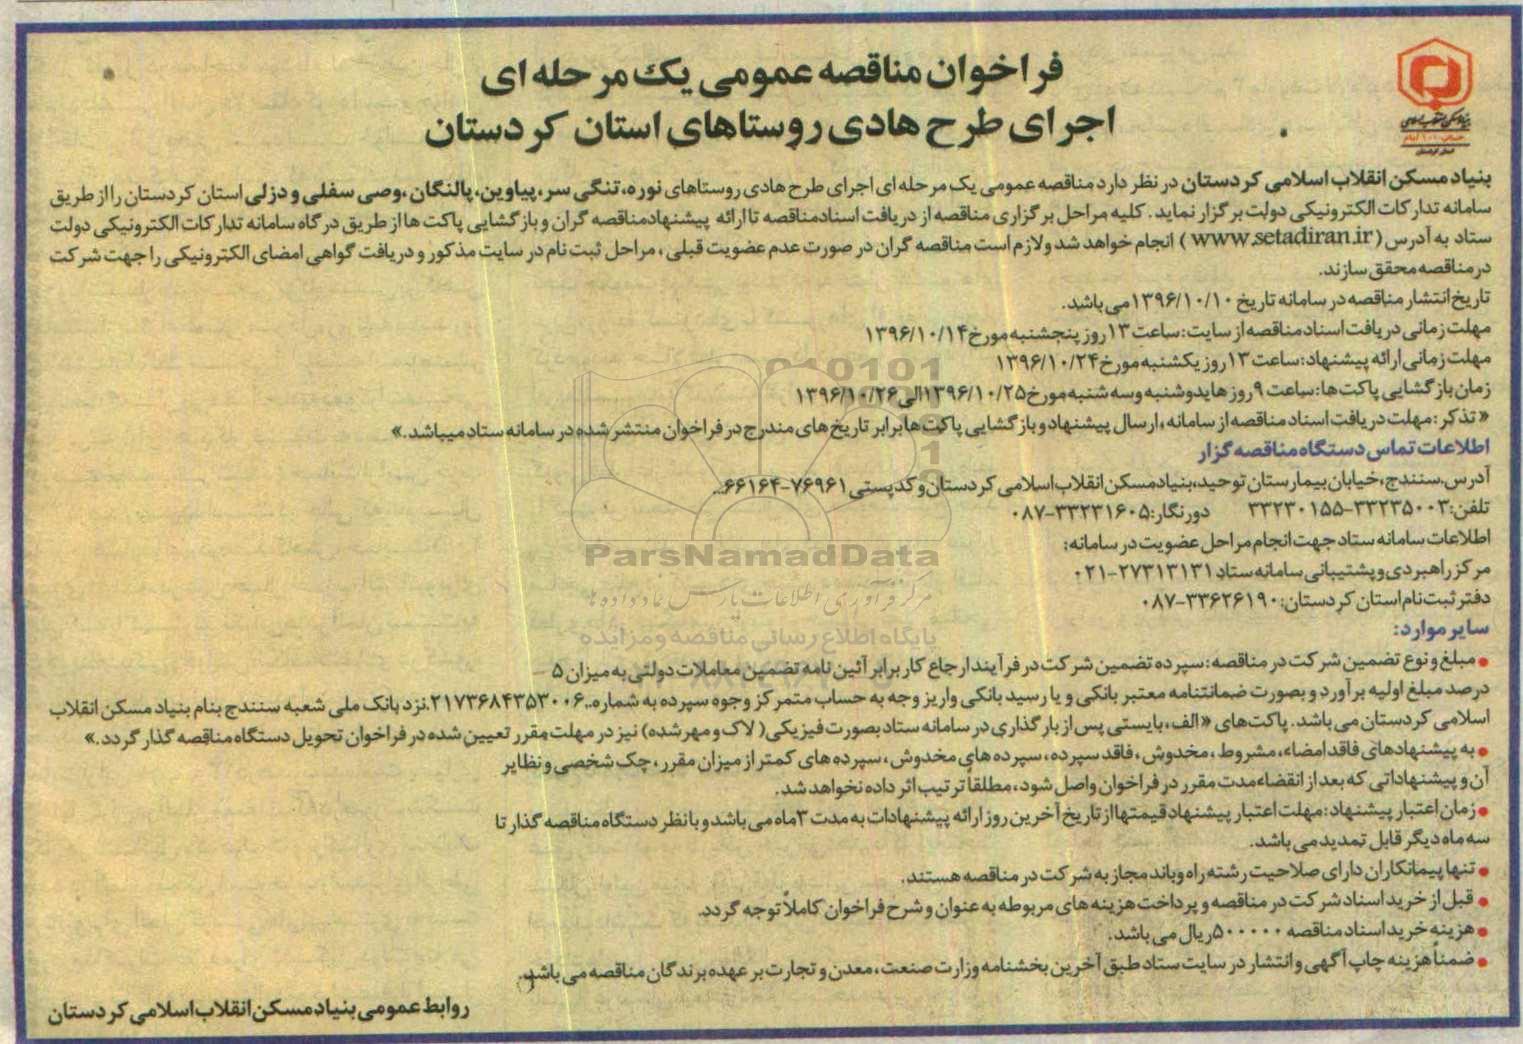 فراخوان مناقصه عمومی یک مرحله ای
اجرای طرح هادی روستاهای استان کردستان
بنیاد مسکن انقلاب اسلامی کردستان در نظر دارد مناقصه عمومی یک مرحله ای اجرای طرح هادی روستاهای نوره، تنگی سر، پیاوین، پالنگان، وصی سفلی و دزلی استان کردستان را از طریق
سامانه تدارکات الکترونیکی دولت برگزار نماید. کلیه مراحل برگزاری مناقصه از دریافت اسناد مناقصه تا ارائه پیشنهاد مناقصه گران و بازگشایی پاکت ها از طریق درگاه سامانه تدارکات الکترونیکی دولت
ستاد به آدرس (www.setadiran.ir) انجام خواهد شد و لازم است مناقصه گران در صورت عدم عضویت قبلی، مراحل ثبت نام در سایت مذکور و دریافت گواهی امضای الکترونیکی را جهت شرکت
در مناقصه محقق سازند.
تاریخ انتشار مناقصه در سامانه تاریخ ۱۳۹۶/۱۰/۱۰ می باشد.
مهلت زمانی دریافت اسناد مناقصه از سایت: ساعت ۱۳ روز پنجشنبه مورخ ۱۳۹۶/۱۰/۱۴
مهلت زمانی ارائه پیشنهاد: ساعت ۱۳ روز یکشنبه مورخ ۱۳۹۶/۱۰/۲۴
زمان بازگشایی پاکت ها: ساعت ۹ روزهای دوشنبه و سه شنبه مورخ ۱۳۹۶/۱۰/۲۵ الی ۱۳۹۶/۱۰/۲۶
« تذکر: مهلت دریافت اسناد مناقصه از سامانه، ارسال پیشنهاد و بازگشایی پاکت ها برابر تاریخ های مندرج در فراخوان منتشر شده در سامانه ستاد میباشد.»
اطلاعات تماس دستگاه مناقصه گزار
آدرس: سنندج، خیابان بیمارستان توحید، بنیاد مسکن انقلاب اسلامی کردستان و کد پستی ۷۶۹۶۱-۶۶۱۶۴
تلفن: ۳۳۲۳۵۰۰۳-۳۳۲۳۰۱۵۵ دورنگار: ۳۳۲۳۱۶۰۵-۰۸۷
اطلاعات سامانه ستاد جهت انجام مراحل عضویت در سامانه:
مرکز راهبردی و پشتیبانی سامانه ستاد ۲۷۳۱۳۱۳۱-۰۲۱
دفتر ثبت نام استان کردستان: ۳۳۶۲۶۱۹۰-۰۸۷
سایر موارد:
● مبلغ و نوع تضمین شرکت در مناقصه: سپرده تضمین شرکت در فرآیند ارجاع کار برابر آئین نامه تضمین معاملات دولتی به میزان ۵
درصد مبلغ اولیه برآورد و بصورت ضمانتنامه معتبر بانکی و یا رسید بانکی واریز وجه به حساب متمرکز وجوه سپرده به شماره ۲۱۷۳۶۸۴۳۵۳۰۰۶ نزد بانک ملی شعبه سنندج بنام بنیاد مسکن انقلاب
اسلامی کردستان می باشد. پاکت های «الف، بایستی پس از بارگذاری در سامانه ستاد بصورت فیزیکی (لاک و مهر شده) نیز در مهلت مقرر تعیین شده در فراخوان تحویل دستگاه مناقصه گذار گردد.»
● به پیشنهادهای فاقد امضاء، مشروط، مخدوش، فاقد سپرده، سپرده های مخدوش، سپرده های کمتر از میزان مقرر، چک شخصی و نظایر
آن و پیشنهاداتی که بعد از انقضاء مدت مقرر در فراخوان واصل شود، مطلقاً ترتیب اثر داده نخواهد شد.
● زمان اعتبار پیشنهاد: مهلت اعتبار پیشنهاد قیمتها از تاریخ آخرین روز ارائه پیشنهادات به مدت ۳ ماه می باشد و با نظر دستگاه مناقصه گذار تا
سه ماه دیگر قابل تمدید می باشد.
● تنها پیمانکاران دارای صلاحیت رشته راه و باند مجاز به شرکت در مناقصه هستند.
● قبل از خرید اسناد شرکت در مناقصه و پرداخت هزینه های مربوطه به عنوان و شرح فراخوان کاملاً توجه گردد.
● هزینه خرید اسناد مناقصه ۵۰۰۰۰۰ ریال می باشد.
● ضمناً هزینه چاپ آگهی و انتشار در سایت ستاد طبق آخرین بخشنامه وزارت صنعت، معدن و تجارت بر عهده برندگان مناقصه می باشد.
روابط عمومی بنیاد مسکن انقلاب اسلامی کردستان
ParsNamadData
مرکز فرآوری اطلاعات پارس نماد داده ها
پایگاه اطلاع رسانی مناقصه و مزایده